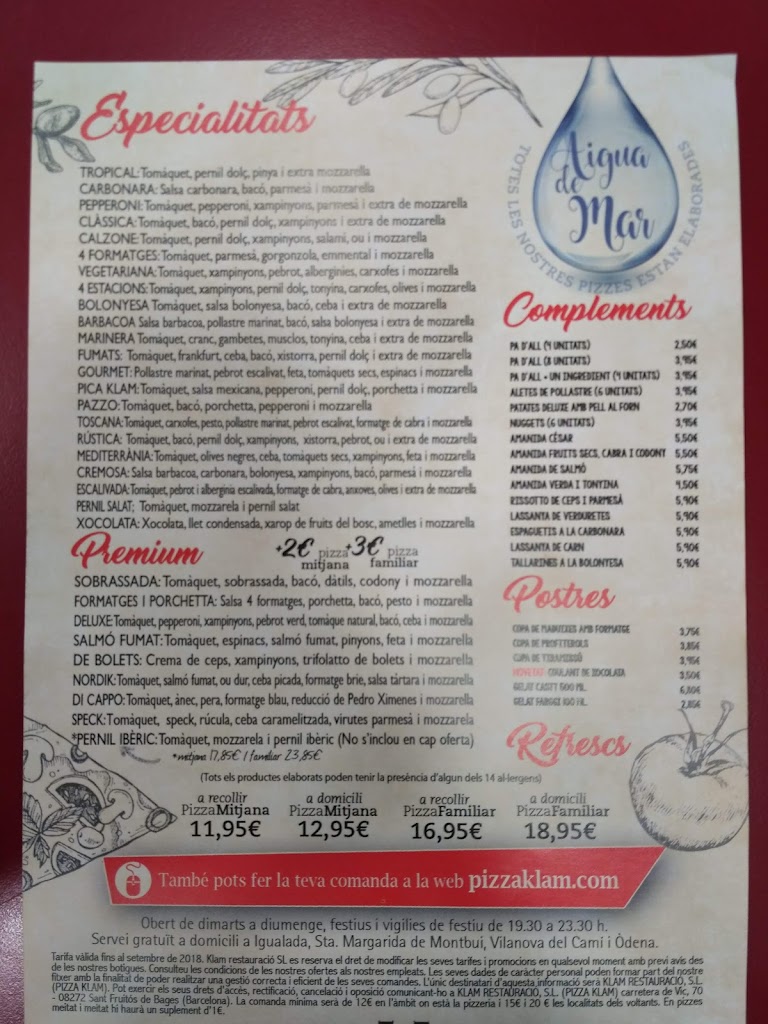 Especialitats
TROPICAL: Tomàquet, pernil dolç, pinya i extra mozzarella
CARBONARA: Salsa carbonara, bacó, parmesà i mozzarella
PEPPERONI: Tomàquet, pepperoni, xampinyons, parmesà i extra de mozzarella
CLÀSSICA: Tomàquet, bacó, pernil dolç, xampinyons i extra de mozzarella
CALZONE: Tomàquet, pernil dolç, xampinyons, salami, ou i mozzarella
4 FORMATGES: Tomàquet, parmesà, gorgonzola, emmental i mozzarella
VEGETARIANA: Tomàquet, xampinyons, pebrot, albergínies, carxofes i mozzarella
4 ESTACIONS: Tomàquet, xampinyons, pernil dolç, tonyina, carxofes, olives i mozzarella
BOLONYESA Tomàquet, salsa bolonyesa, bacó, ceba i extra de mozzarella
BARBACOA Salsa barbacoa, pollastre marinat, bacó, salsa bolonyesa i extra de mozzarella
MARINERA Tomàquet, cranc, gambetes, musclos, tonyina, ceba i extra de mozzarella
FUMATS: Tomàquet, frankfurt, ceba, bacó, xistorra, pernil dolç i extra de mozzarella
GOURMET: Pollastre marinat, pebrot escalivat, feta, tomàquets secs, espinacs i mozzarella
PICA KLAM: Tomàquet, salsa mexicana, pepperoni, pernil dolç, porchetta i mozzarella
PAZZO: Tomàquet, bacó, porchetta, pepperoni i mozzarella
TOSCANA: Tomàquet, carxofes, pesto, pollastre marinat, pebrot escalivat, formatge de cabra i mozzarella
RÚSTICA: Tomàquet, bacó, pernil dolç, xampinyons, xistorra, pebrot, ou i extra de mozzarella
MEDITERRÀNIA: Tomàquet, olives negres, ceba, tomàquets secs, xampinyons, feta i mozzarella
CREMOSA: Salsa barbacoa, carbonara, bolonyesa, xampinyons, bacó, parmesà i mozzarella
ESCALIVADA: Tomàquet, pebrot i albergínia escalivada, formatge de cabra, anxoves, olives i extra de mozzarella
PERNIL SALAT; Tomàquet, mozzarela i pernil salat
XOCOLATA: Xocolata, llet condensada, xarop de fruits del bosc, ametlles i mozzarella
Premium +2€ pizza mitjana +3€ pizza familiar
SOBRASSADA: Tomàquet, sobrassada, bacó, dàtils, codony i mozzarella
FORMATGES I PORCHETTA: Salsa 4 formatges, porchetta, bacó, pesto i mozzarella
DELUXE: Tomàquet, pepperoni, xampinyons, pebrot verd, tomàque natural, bacó, ceba i mozzarella
SALMÓ FUMAT: Tomàquet, espinacs, salmó fumat, pinyons, feta i mozzarella
DE BOLETS: Crema de ceps, xampinyons, trifolatto de bolets i mozzarella
NORDIK: Tomàquet, salmó fumat, ou dur, ceba picada, formatge brie, salsa tàrtara i mozzarella
DI CAPPO: Tomàquet, ànec, pera, formatge blau, reducció de Pedro Ximenes i mozzarella
SPECK: Tomàquet, speck, rúcula, ceba caramelitzada, virutes parmesà i mozzarela
*PERNIL IBÈRIC: Tomàquet, mozzarela i pernil ibèric (No s'inclou en cap oferta)
*mitjana 17,85€ / familiar 23,85€
Aigua de Mar
TOTES LES NOSTRES PIZZES ESTAN ELABORADES
Complements
PA D'ALL (4 UNITATS) 2,50€
PA D'ALL (8 UNITATS) 3,95€
PA D'ALL + UN INGREDIENT (4 UNITATS) 3,95€
ALETES DE POLLASTRE (6 UNITATS) 3,95€
PATATES DELUXE AMB PELL AL FORN 2,70€
NUGGETS (6 UNITATS) 3,95€
AMANIDA CÉSAR 5,50€
AMANIDA FRUITS SECS, CABRA I CODONY 5,50€
AMANIDA DE SALMÓ 5,75€
AMANIDA VERDA I TONYINA 4,50€
RISSOTTO DE CEPS I PARMESÀ 5,90€
LASSANYA DE VERDURETES 5,90€
ESPAGUETIS A LA CARBONARA 5,90€
LASSANYA DE CARN 5,90€
TALLARINES A LA BOLONYESA 5,90€
Postres
COPA DE MADUIXES AMB FORMATGE 3,75€
COPA DE PROFITEROLS 3,85€
COPA DE TIRAMISSÚ 3,95€
NOVETAT: COULANT DE XOCOLATA 3,50€
GELAT 500 ML. 6,80€
GELAT 100 ML. 2,85€
Refrescs
(Tots els productes elaborats poden tenir la presència d'algun dels 14 al·lergens)
a recollir PizzaMitjana 11,95€
a domicili PizzaMitjana 12,95€
a recollir PizzaFamiliar 16,95€
a domicili PizzaFamiliar 18,95€
També pots fer la teva comanda a la web pizzaklam.com
Obert de dimarts a diumenge, festius i vigílies de festiu de 19.30 a 23.30 h.
Servei gratuït a domicili a Igualada, Sta. Margarida de Montbui, Vilanova del Camí i Òdena.
Tarifa vàlida fins al setembre de 2018. Klam restauració SL es reserva el dret de modificar les seves tarifes i promocions en qualsevol moment amb previ avís des
de les nostres botigues. Consulteu les condicions de les nostres ofertes als nostres empleats. Les seves dades de caràcter personal poden formar part del nostre
fitxer amb la finalitat de poder realitzar una gestió correcta i eficient de les seves comandes. L'únic destinatari d'aquesta informació serà KLAM RESTAURACIÓ, S.L.
(PIZZA KLAM). Pot exercir els seus drets d'accés, rectificació, cancelació i oposició comunicant-ho a KLAM RESTAURACIÓ, S.L. (PIZZA KLAM) carretera de Vic, 70
- 08272 Sant Fruitós de Bages (Barcelona). La comanda mínima serà de 12€ en l'àmbit on està la pizzeria i 15€ i 20 € les localitats dels voltants. En pizzes
meitat i meitat hi haurà un suplement d'1€.